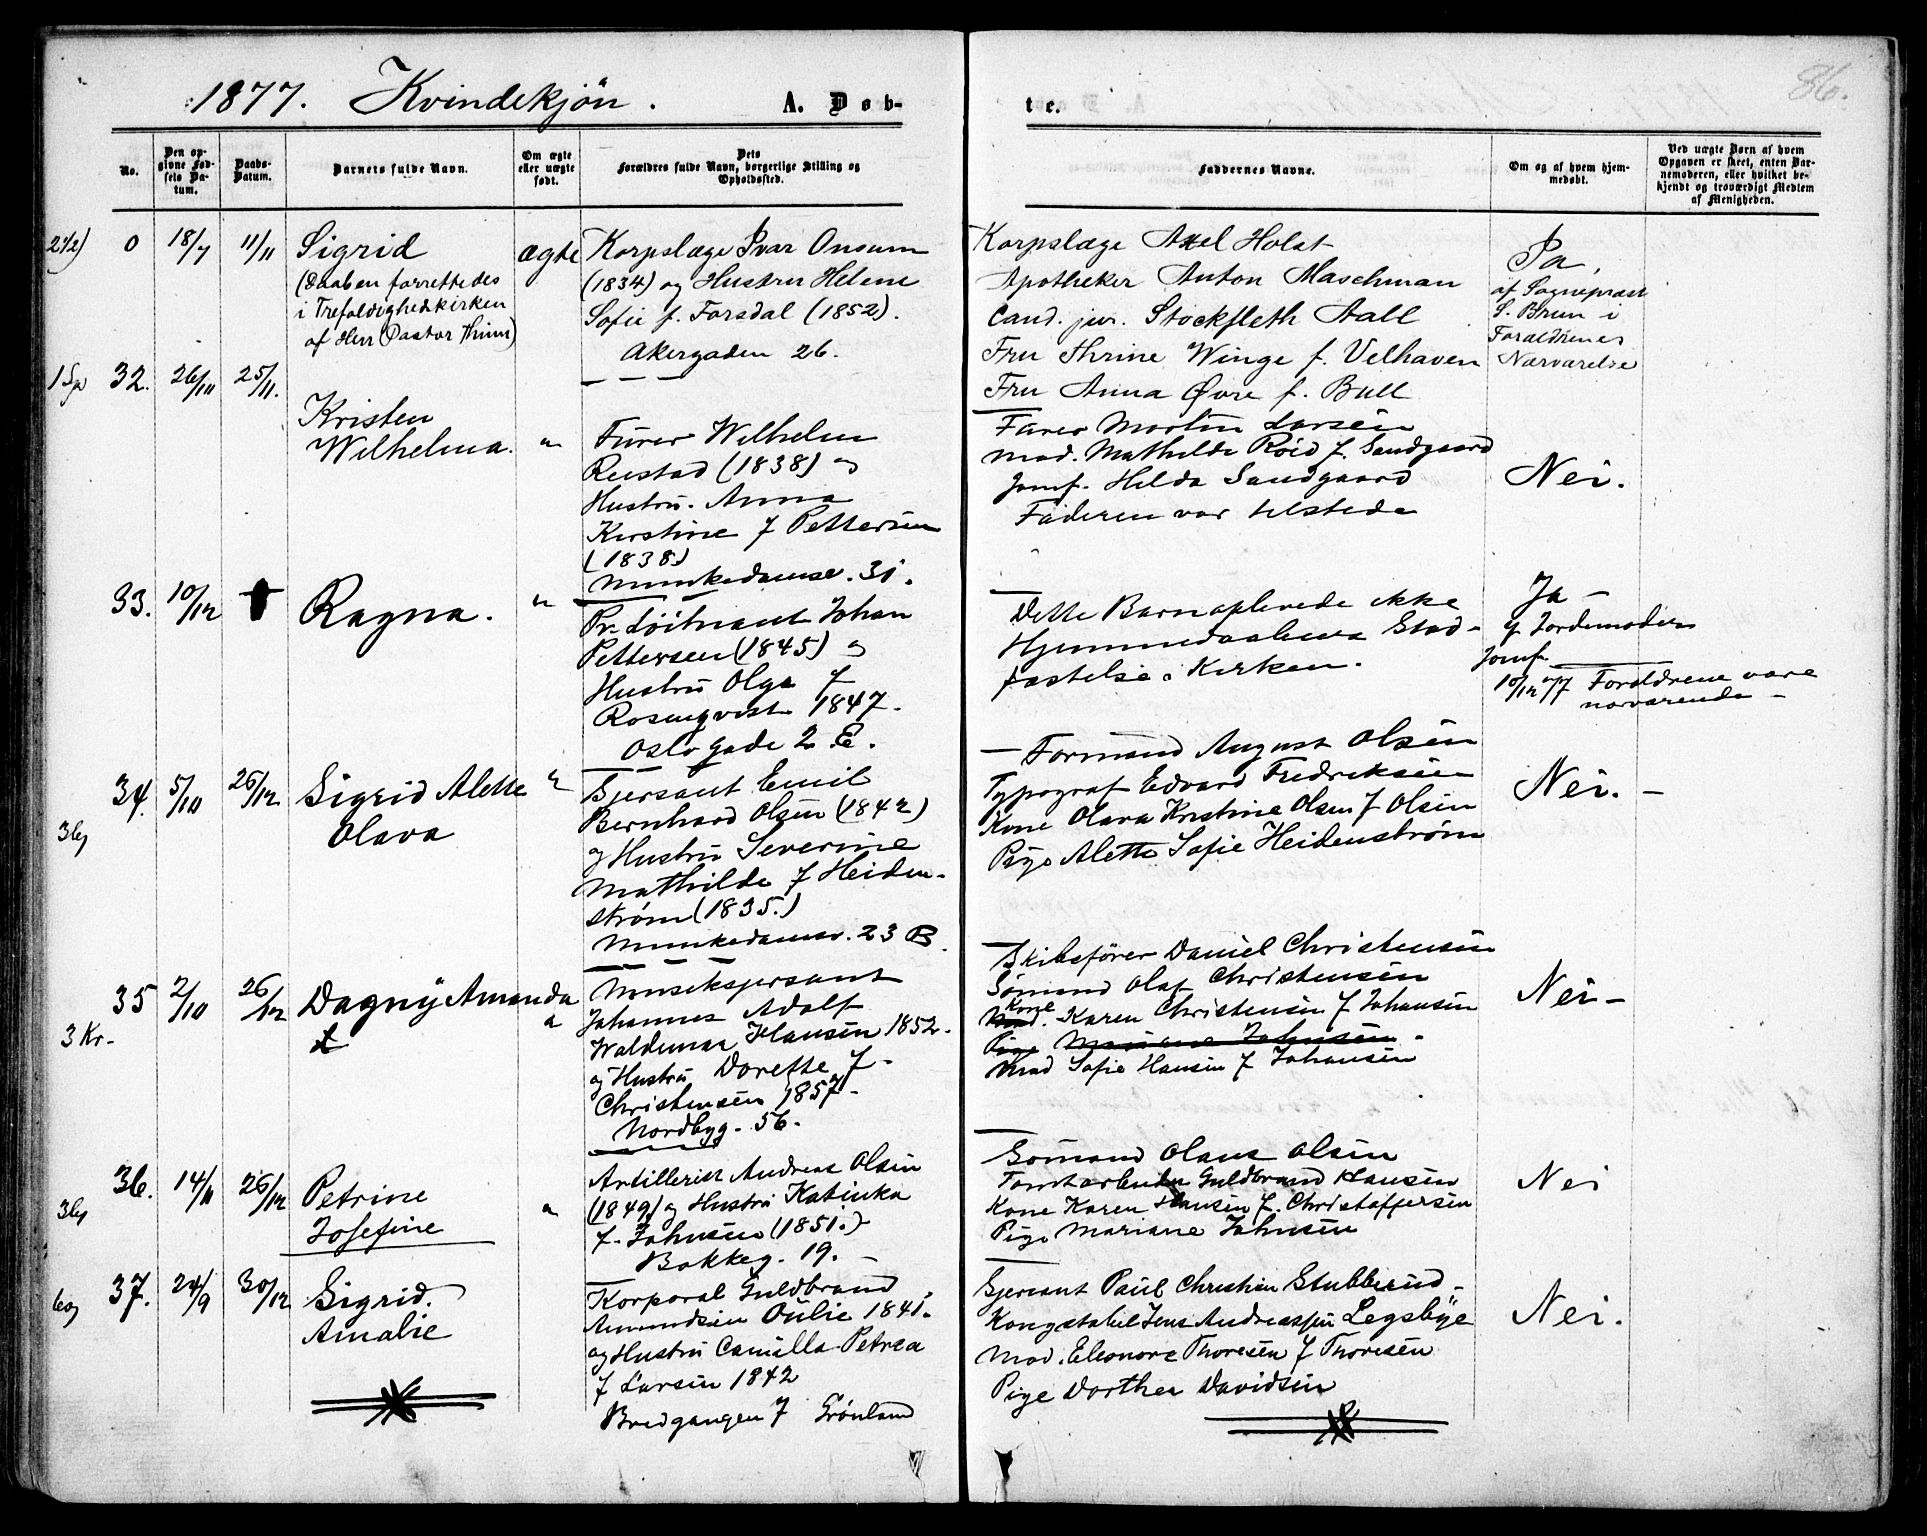 1877. Kvindekjön.
A. Døb-
te.
86.
No.
Den op-
givne Fød-
sels Da-
tum.
Daabs-
Datum.
Barnets fulde Navn.
Om ægte
eller uægte
født.
Dets
Forældres fulde Navn, borgerlige Stilling og
Opholdssted.
Faddernes Navne.
Om og af hvem hjem-
medøbt.
Ved uægte Børn af hvem
Opgaven er skeet, enten Bar-
nemoderen, eller hvilket be-
kjendt og troværdigt Medlem
af Menigheden.
0 18/7 11/11 Sigrid ægte
(Daaben forrettedes
i Trefoldighedkirken
af Herr Pastor Thim)
Korpslæge Ivar Onsum
(1834) og Hustru Helene
Sofie f. Forsdal (1852).
Akergaden 26.
Korpslæge Axel Holst
Apotheker Anton Maschman
Cand. jur. Stockfleth Aall
Fru Thrine Winge f. Velhaven
Fru Anna Øvre f. Bull
Ja,
af Sognepræst
S. Brun i
Forældrenes
Nærværelse
32. 26/10 25/11.
Kristen
Wilhelma. "
Furer Wilhelm
Reistad (1838) og
Hustru. Anna
Kirstine f Pettersen
(1838)
Munkedamsv. 31.
Furer Martin Larsen
Mad. Mathilde Röid f. Sandgaard
Jomf. Hilda Sandgaard
Faderen var tilstede
Nei.
33. 10/12 † Ragna. "
Pr. Löitnant Johan
Pettersen (1845) og
Hustru Olga f
Rosenqvist 1847.
Oslo gade 2 E.
Dette Barn oplevede ikke
Hjemmedaabens Stad-
fæstelse i Kirken.
Ja –
af Jordemoder
Jomf.
10/12 77 Forældrene vare
nærværende –
34. 5/10 26/12 Sigrid Alette "
Olava
3
Sjersant Emil
Bernhard Olsen (1842)
og Hustru Severine
Mathilde f Heiden-
strøm (1835.)
Munkedamsv. 23 B
Formand August Olsen
Typograf Edvard Fredriksen
Kone Olava Kristine Olsen f Olsen
Pige Alette Sofie Heidenstrøm
Nei. –
35 2/10 26/12 Dagny Amanda "
3 Kr-
Musiksjersant
Johannes Adolf
Waldemar Hansen 1852.
og Hustru Dorette f-
Christensen 1857-
Nordbyg. 56.
Skibsfører Daniel Christensen
Sömand Olaf Christensen
Kone Karen Christensen f Johansen
Pige Mariane Johnsen.
Mad Sofie Hansen f Johansen
Nei –
36. 14/11 26/12 Petrine
Josefine "
Artillerist Andreas Olsen
(1849) og Hustru Katinka
f. Johnsen (1851.)
Bakkeg. 19. –
Sömand Olaus Olsen
Tomtarbeider Guldbrand Hansen
Kone Karen Hansen f. Christoffersen
Pige Mariane Johnsen
Nei
37. 24/9 30/12 Sigrid.
Amalie
Korporal Guldbrand
Amundsen Öulie 1841.
og Hustru Camilla Petrea
f Larsen 1842
Bredgangen 7 Grönland
Sjersant Paul Christian Stubberud –
Kongstabel Jens Andreassen Legsbye
Mad. Eleonore Thoresen f Thoresen
Pige Dorthea Davidsen
Nei.